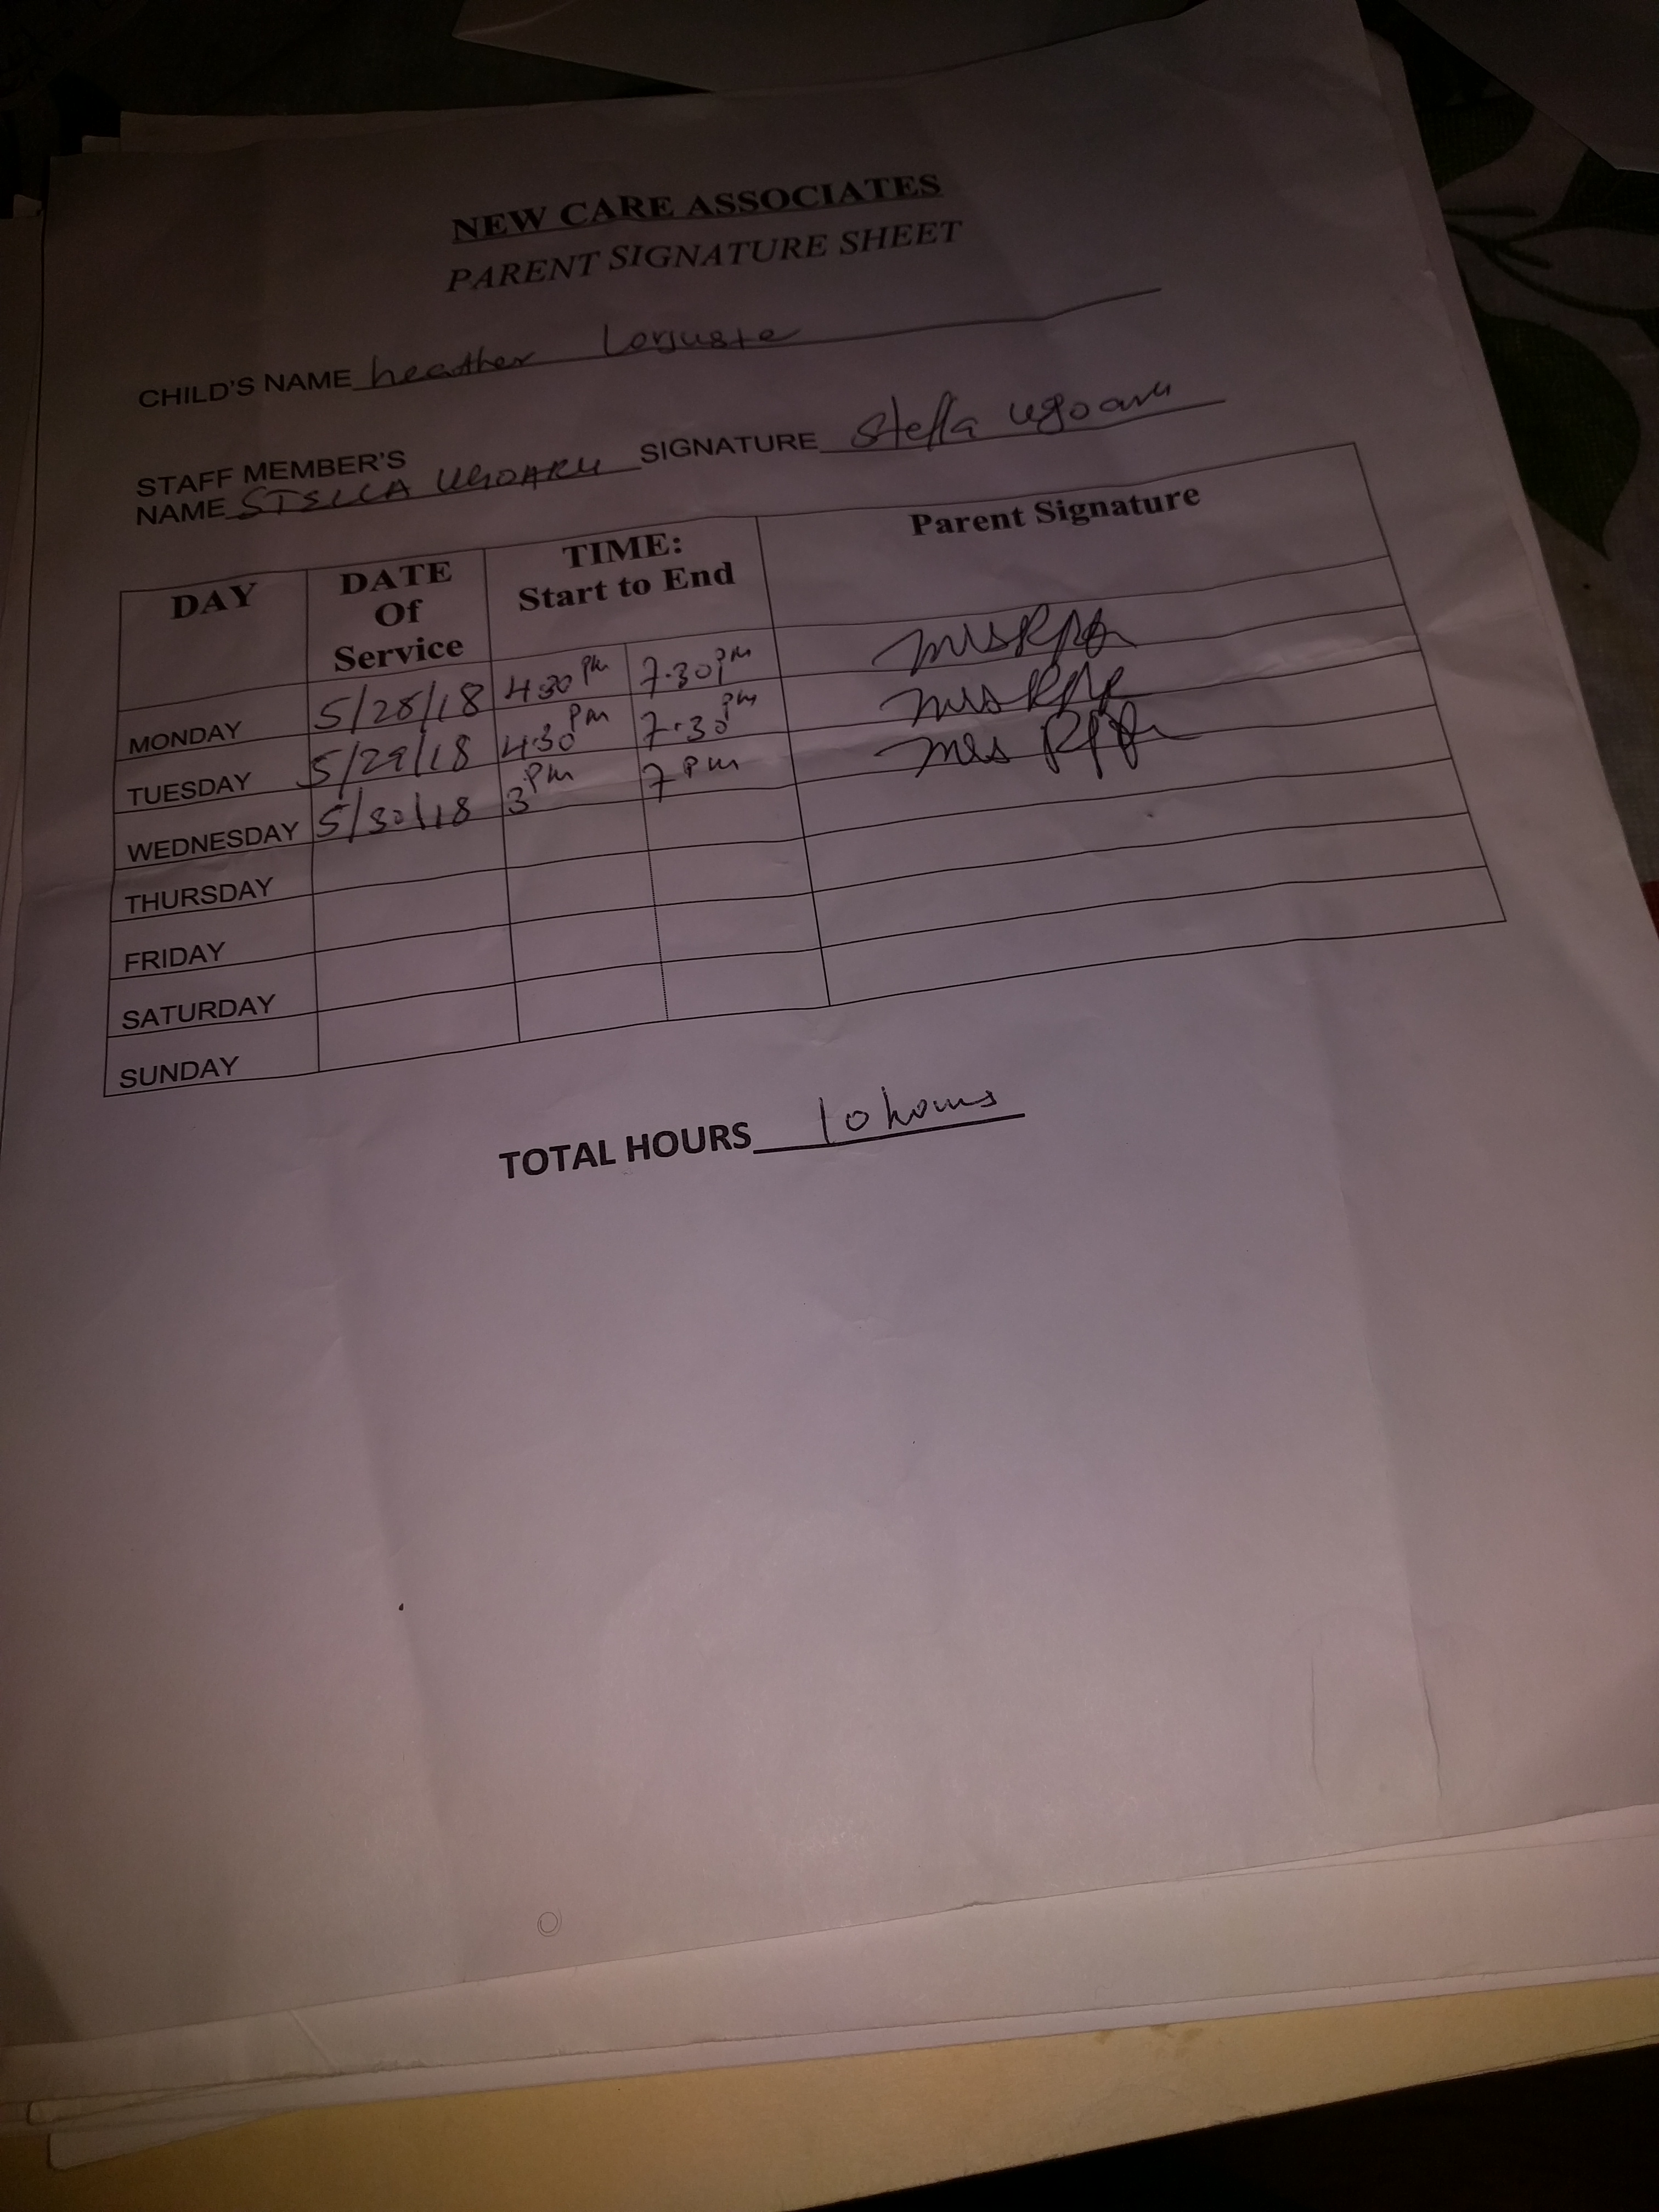 NEW CARE ASSOCIATES
PARENT SIGNATURE SHEET
CHILD'S NAME heather Lorjuste
STAFF MEMBER'S
NAME STELLA UGOARU SIGNATURE Stella Ugoaru
DAY DATE Of Service TIME: Start to End Parent Signature
MONDAY 5/28/18 4:30 PM 7:30 PM
TUESDAY 5/29/18 4:30 PM 7:30 PM
WEDNESDAY 5/30/18 3 PM 7 PM
THURSDAY
FRIDAY
SATURDAY
SUNDAY
TOTAL HOURS 10 hours